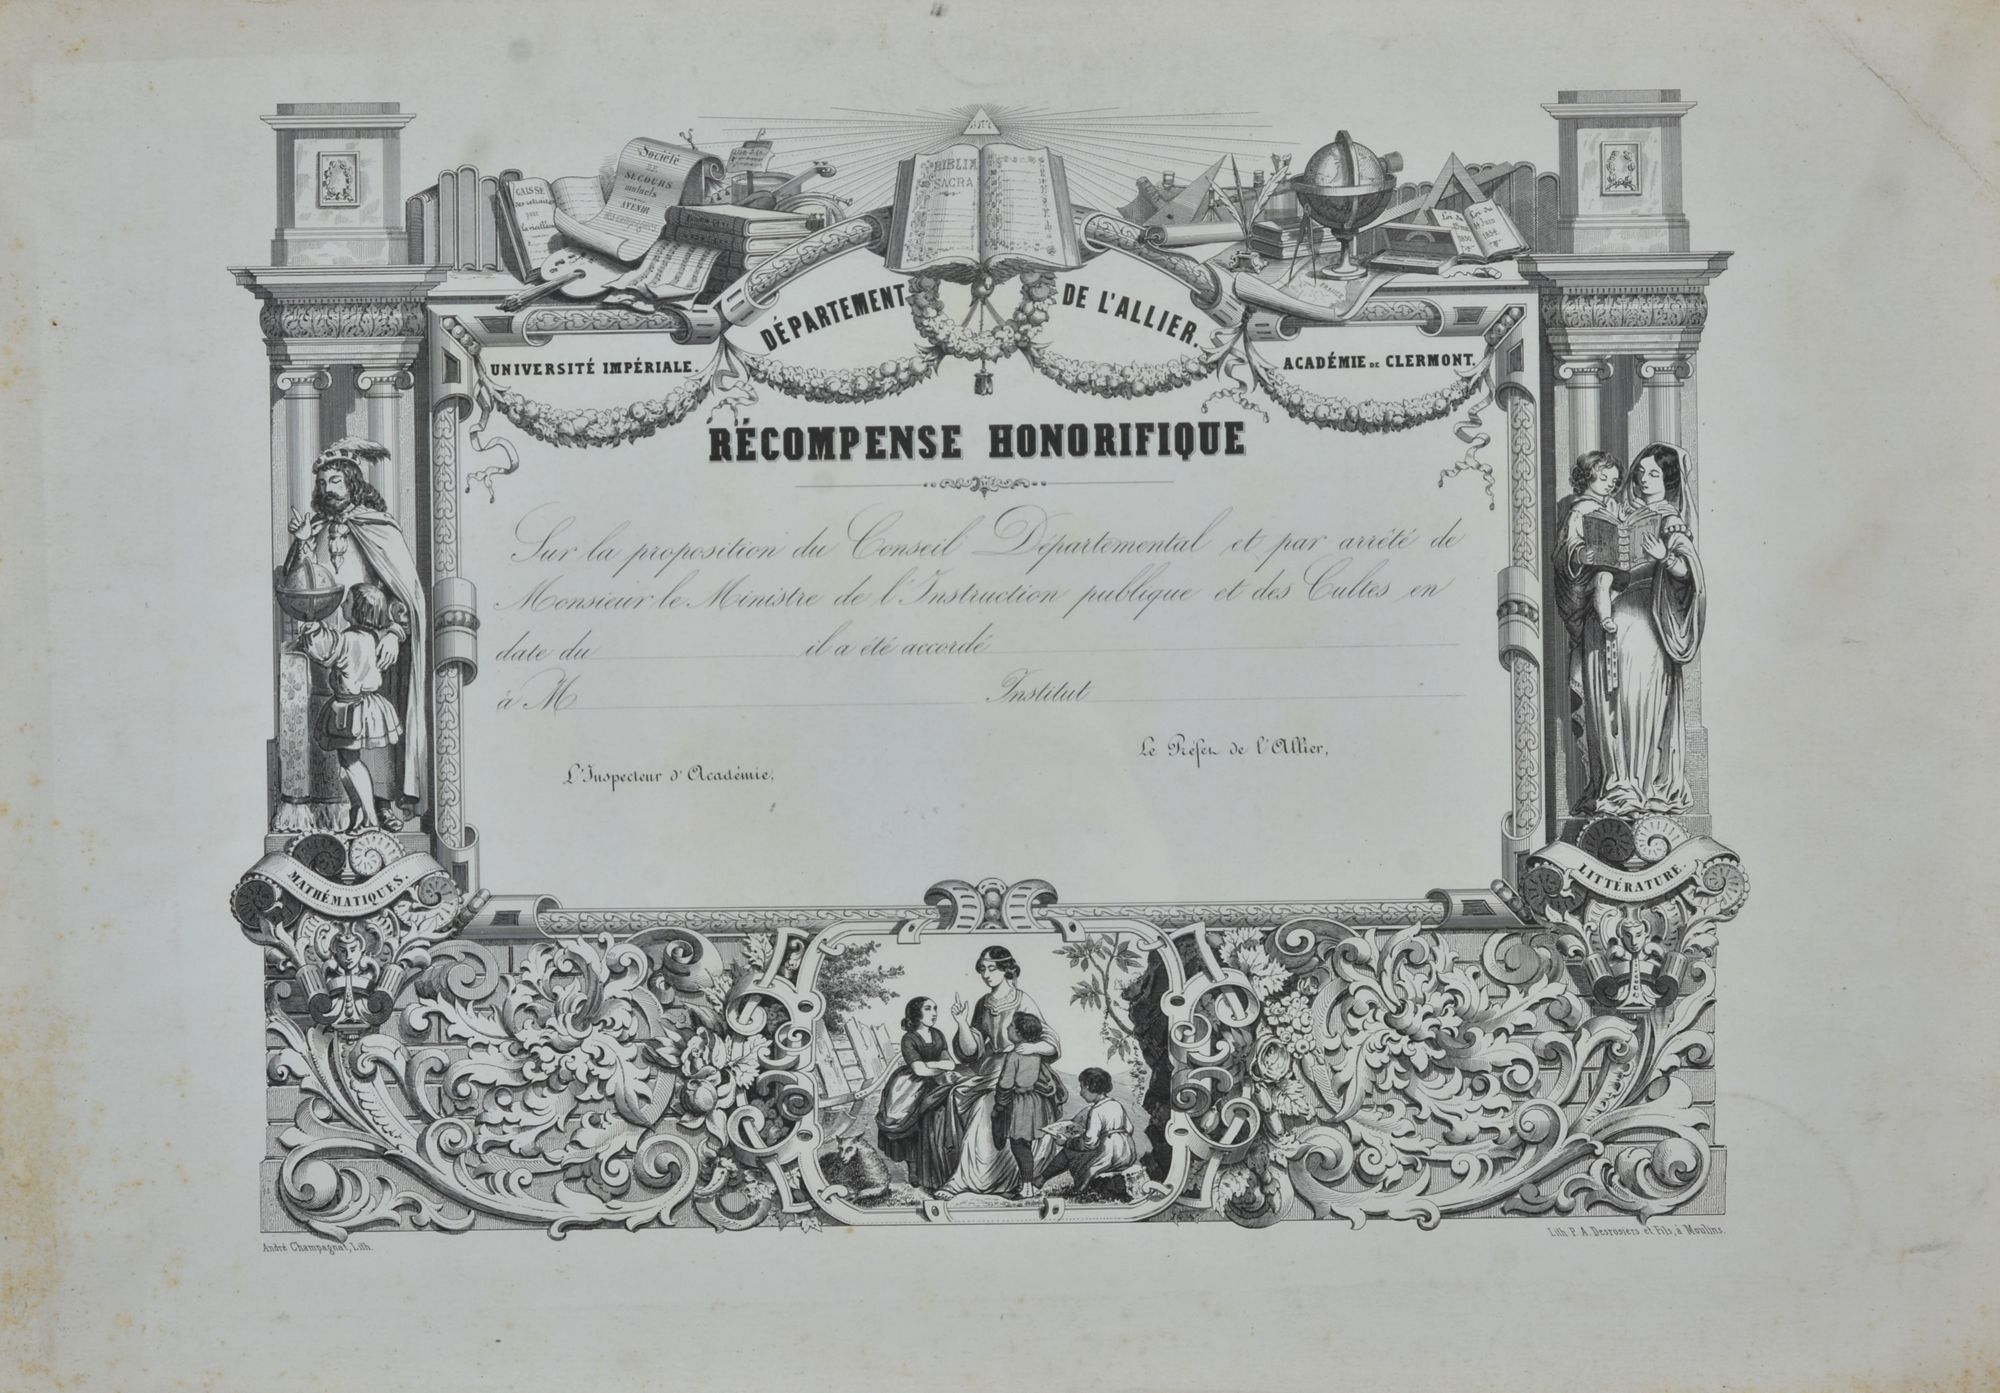 CAISSE
des retraites
pour
la vieillesse
Société
DE
SECOURS
mutuels
AVENIR
BIBLIA
SACRA
Loi du
Loi du
14 Juin
1854
1850
FRANCE
DÉPARTEMENT DE L'ALLIER.
UNIVERSITÉ IMPÉRIALE.
ACADÉMIE DE CLERMONT.
RÉCOMPENSE HONORIFIQUE
Sur la proposition du Conseil Départemental et par arrêté de
Monsieur le Ministre de l'Instruction publique et des Cultes en
date du il a été accordé
à M Institut
Le Préfet de l'Allier,
L'Inspecteur d'Académie,
MATHÉMATIQUES.
LITTÉRATURE.
André Champagnat, Lith.
Lith P. A. Desrosiers et Fils, à Moulins.